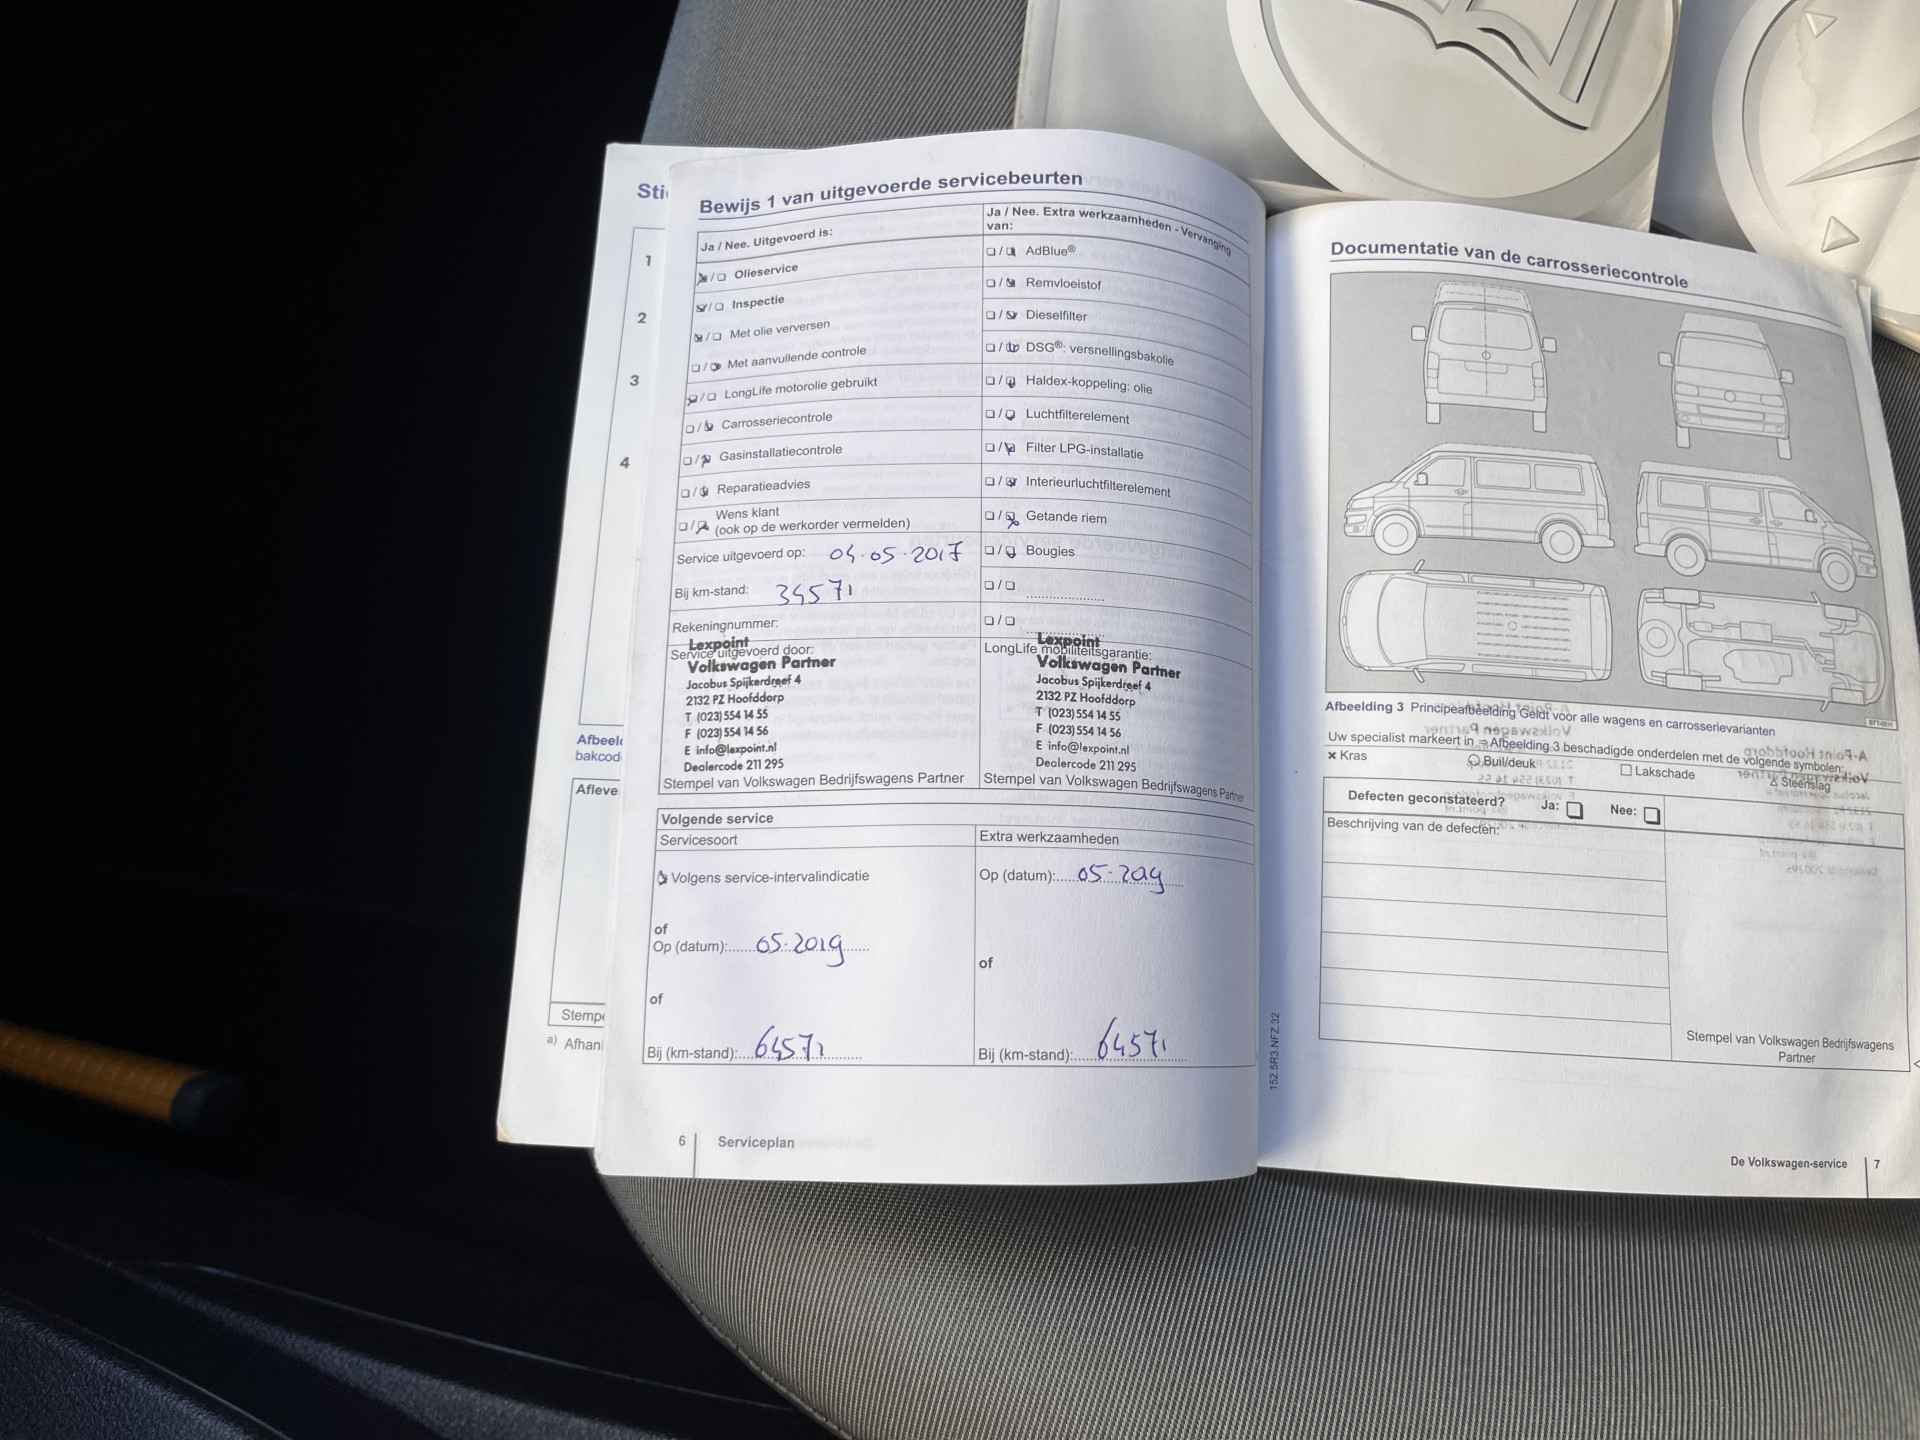 Sti
1
2
3
4
Afbeeld
bakcod
Afleve
Stempe
a) Afhanl
Bewijs 1 van uitgevoerde servicebeurten
Ja / Nee. Uitgevoerd is:
Olieservice
Inspectie
Met olie verversen
Met aanvullende controle
LongLife motorolie gebruikt
Carrosseriecontrole
Gasinstallatiecontrole
Reparatieadvies
Wens klant
(ook op de werkorder vermelden)
Service uitgevoerd op: 04·05·2017
Bij km-stand: 34571
Rekeningnummer:
Service uitgevoerd door:
Lexpoint
Volkswagen Partner
Jacobus Spijkerdreef 4
2132 PZ Hoofddorp
T (023) 554 14 55
F (023) 554 14 56
E info@lexpoint.nl
Dealercode 211 295
Stempel van Volkswagen Bedrijfswagens Partner
Ja / Nee. Extra werkzaamheden - Vervanging
van:
AdBlue®
Remvloeistof
Dieselfilter
DSG®: versnellingsbakolie
Haldex-koppeling: olie
Luchtfilterelement
Filter LPG-installatie
Interieurluchtfilterelement
Getande riem
Bougies
LongLife mobiliteitsgarantie:
Lexpoint
Volkswagen Partner
Jacobus Spijkerdreef 4
2132 PZ Hoofddorp
T (023) 554 14 55
F (023) 554 14 56
E info@lexpoint.nl
Dealercode 211 295
Stempel van Volkswagen Bedrijfswagens Partner
Volgende service
Servicesoort
Volgens service-intervalindicatie
of
Op (datum): 05·2019
of
Bij (km-stand): 64571
Extra werkzaamheden
Op (datum): 05·2019
of
Bij (km-stand): 64571
6 Serviceplan
152.5R3.NFZ.32
Documentatie van de carrosseriecontrole
Afbeelding 3 Principeafbeelding Geldt voor alle wagens en carrosserievarianten
Uw specialist markeert in ⇒ Afbeelding 3 beschadigde onderdelen met de volgende symbolen:
× Kras
Buil/deuk
Lakschade
Steenslag
Defecten geconstateerd? Ja: Nee:
Beschrijving van de defecten:
Stempel van Volkswagen Bedrijfswagens
Partner
De Volkswagen-service 7